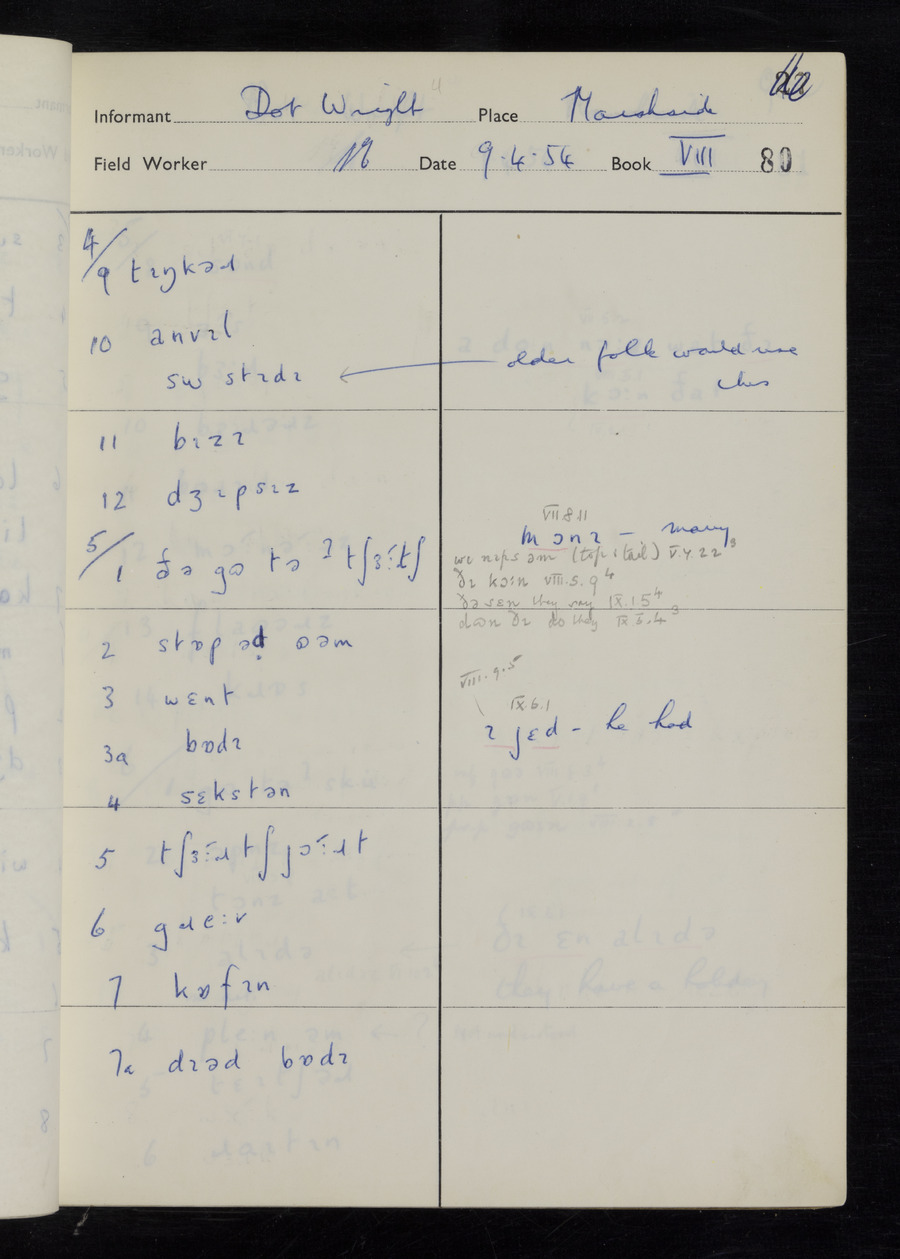 Informant Dot Wright Place Marshside
Field Worker Date 9.4.54 Book VIII 80
4/9 tɪŋkəɹ
10 anvɪl
sw stɪdɪ ← older folk would use
this
11 bɪzɪ
12 dʒɪpsɪz
VII.8.11
mɔnɪ – many
5/1 ðə gɷ tə ʔtʃɜːtʃ
we nɪps əm (top & tail) V.7.22³
ðɪ kɔːn VIII.5.9⁴
ðəsɛn they say IX.1.5⁴
dɷn ðɪ do they IX.5.4³
2 stɒp əd ɷəm
3 wɛnt
VIII.9.5
IX.6.1
ɪ jɛd – he had
3a bɒdɪ
4 sɛkstən
5 tʃɜːɹtʃjɔːɹt
6 gɹeːv
7 kɒfɪn
7a dɪəd bɒdɪ